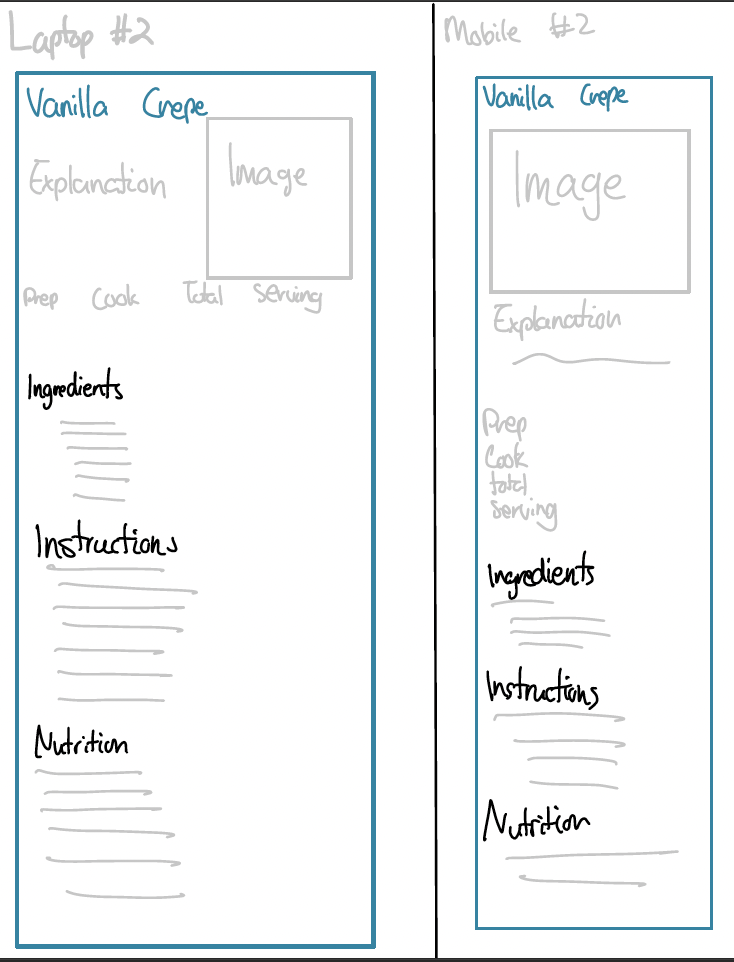 Laptop #2
Vanilla Crepe
Explanation
Image
Prep Cook Total Serving
Ingredients
Instructions
Nutrition
Mobile #2
Vanilla Crepe
Image
Explanation
Prep
Cook
total
serving
Ingredients
Instructions
Nutrition